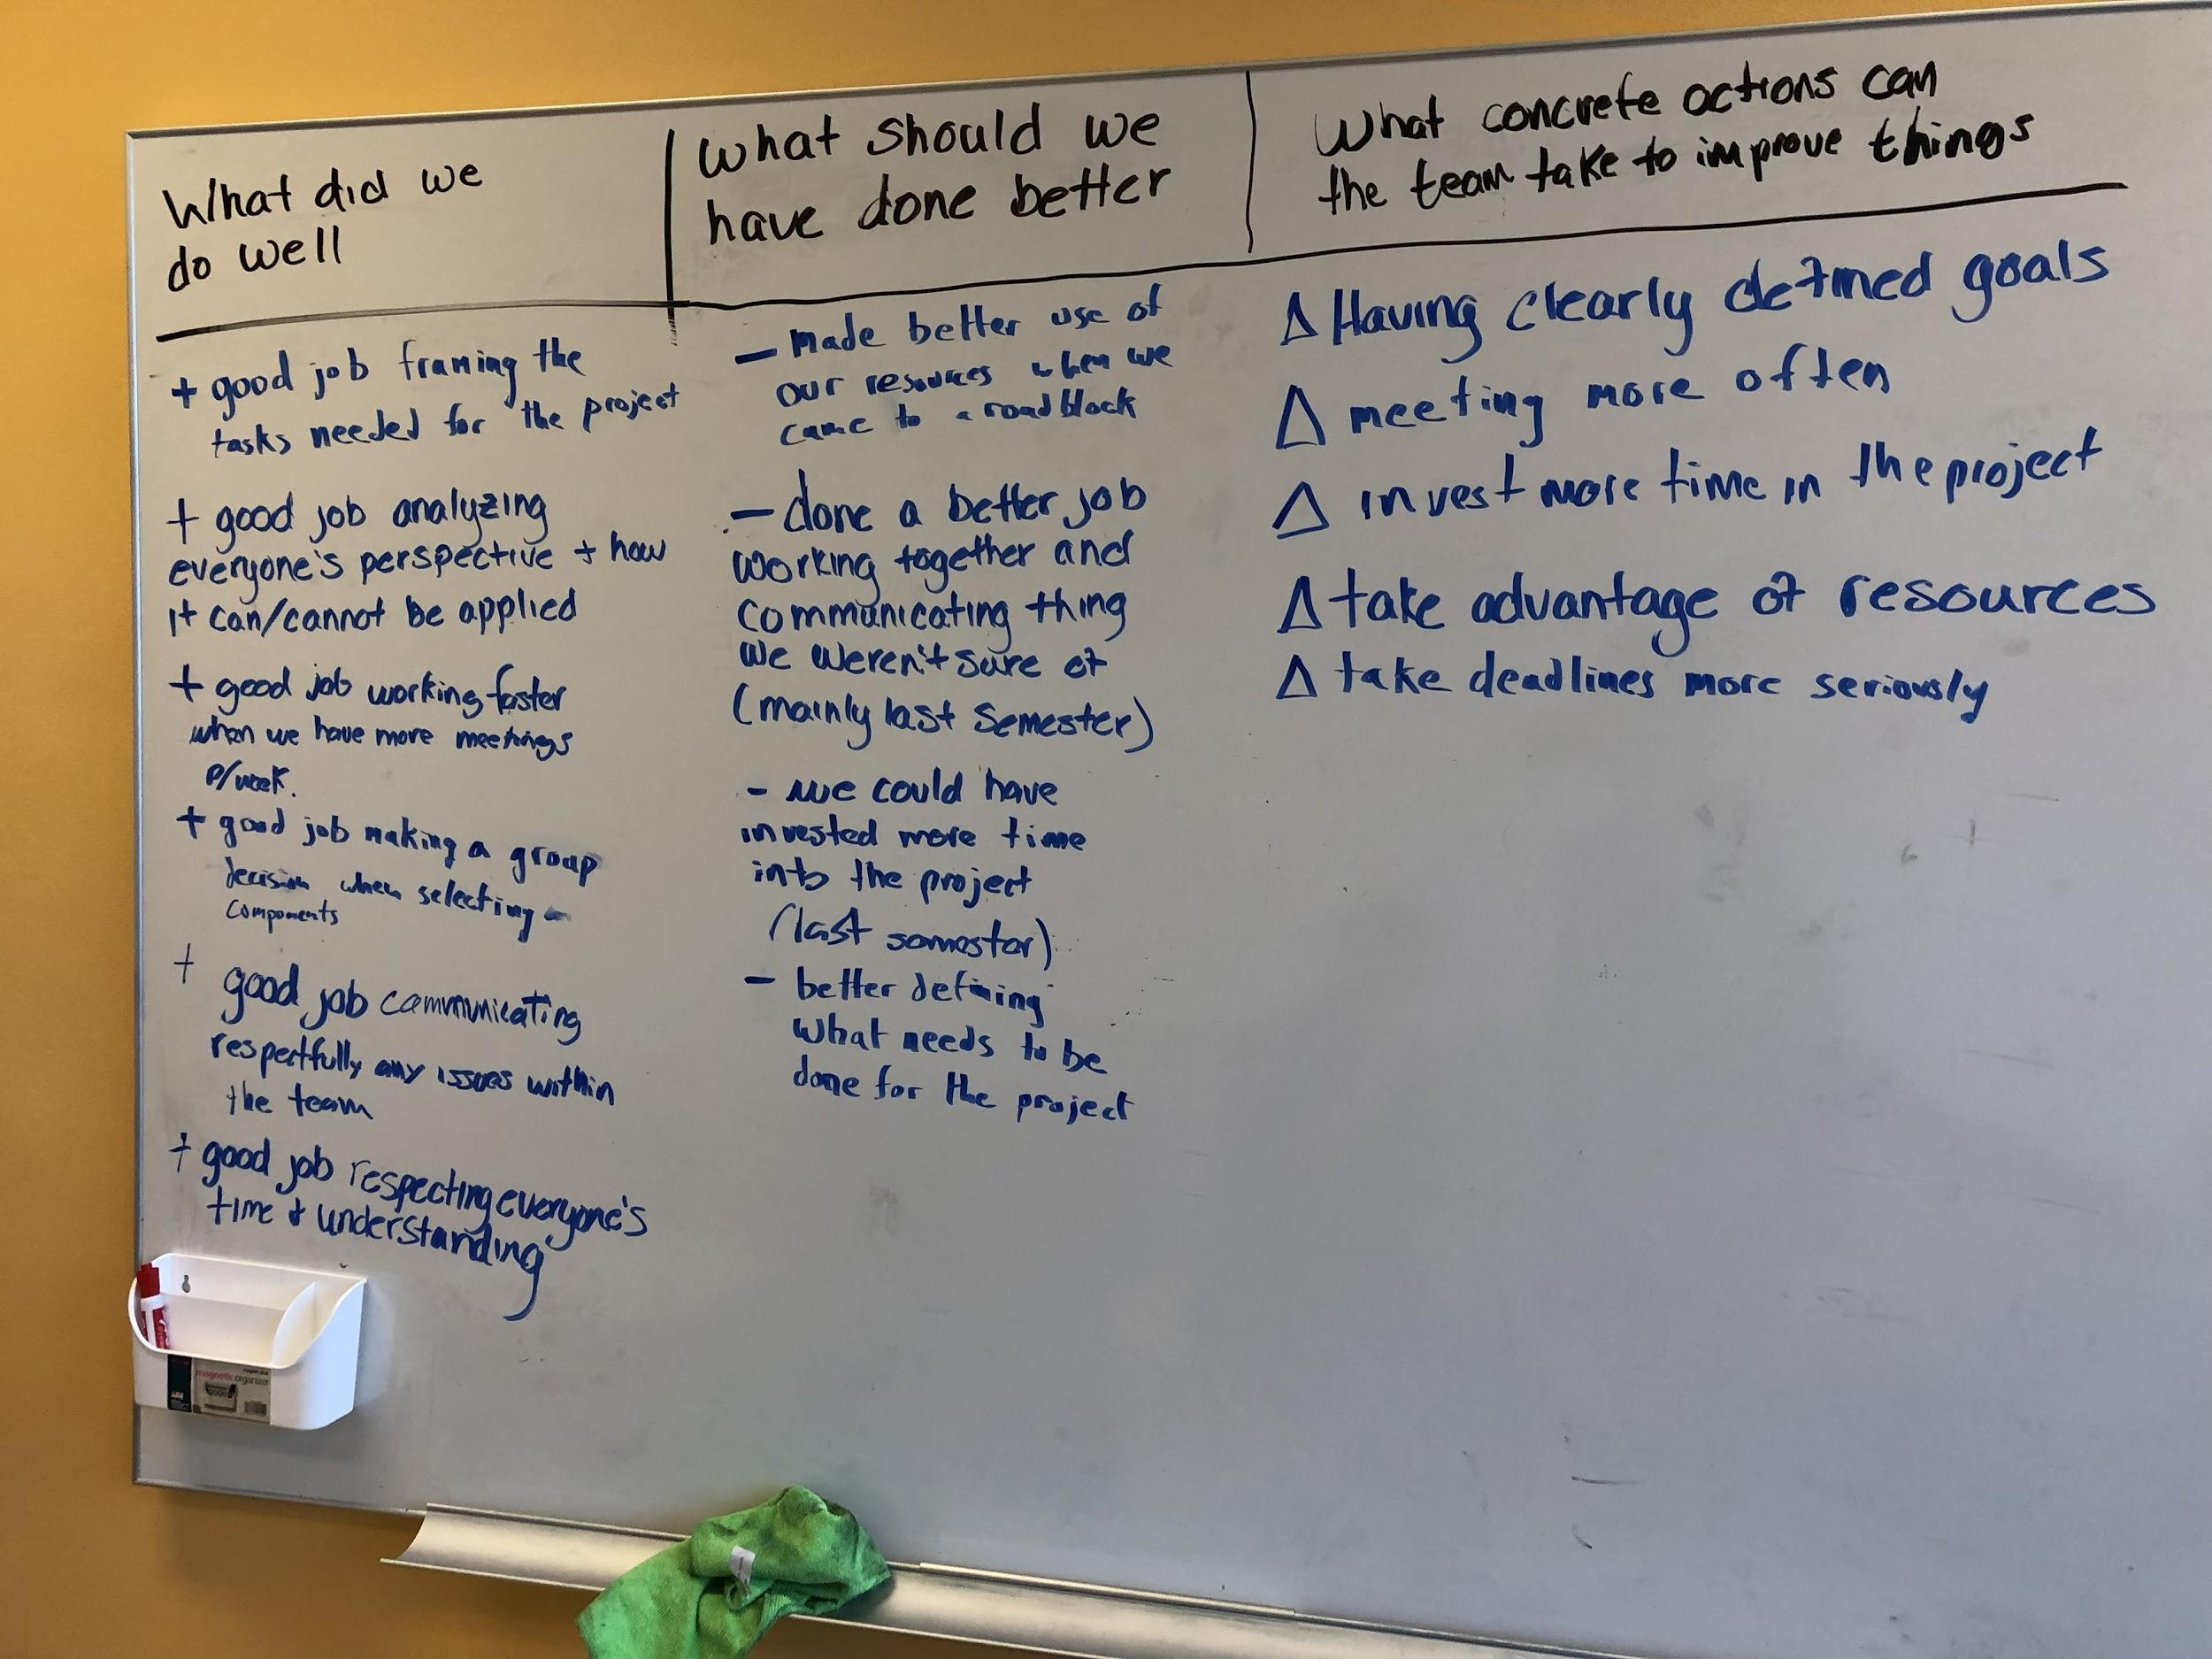 What did we
do well
+ good job framing the
tasks needed for the project
+ good job analyzing
everyone's perspective + how
it can/cannot be applied
+ good job working faster
when we have more meetings
p/week.
+ good job making a group
decision when selecting
components
+ good job communicating
respectfully any issues within
the team
+ good job respecting everyone's
time & understanding
What should we
have done better
- made better use of
our resources when we
came to a roadblock
- done a better job
working together and
communicating thing
we weren't sure of
(mainly last semester)
- we could have
invested more time
into the project
(last semester)
- better defining
what needs to be
done for the project
What concrete actions can
the team take to improve things
Δ Having clearly defined goals
Δ meeting more often
Δ invest more time in the project
Δ take advantage of resources
Δ take deadlines more seriously
magnetic organizer